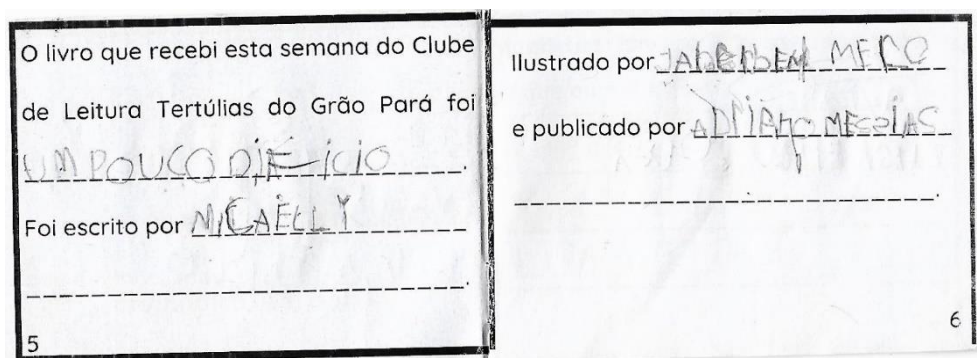 O livro que recebi esta semana do Clube
de Leitura Tertúlias do Grão Pará foi
UM POUCO DIFÍCIO.
Foi escrito por MICAELLY
5
Ilustrado por MELO
e publicado por ADRIANO MESSIAS
6